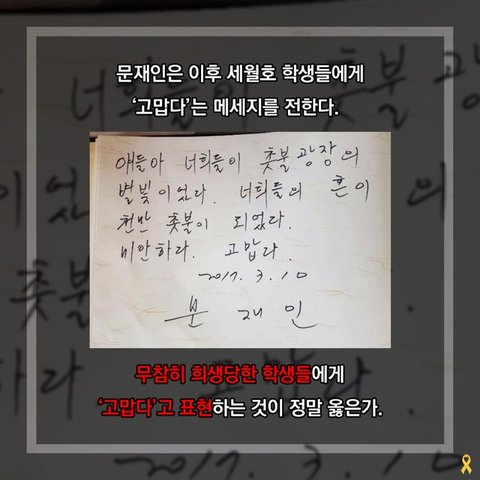 문재인은 이후 세월호 학생들에게
‘고맙다’는 메세지를 전한다.
얘들아 너희들이 촛불 광장의
별빛이었다. 너희들의 혼이
천만 촛불이 되었다.
미안하다. 고맙다.
2017. 3. 10
문 재 인
무참히 희생당한 학생들에게
‘고맙다’고 표현하는 것이 정말 옳은가.